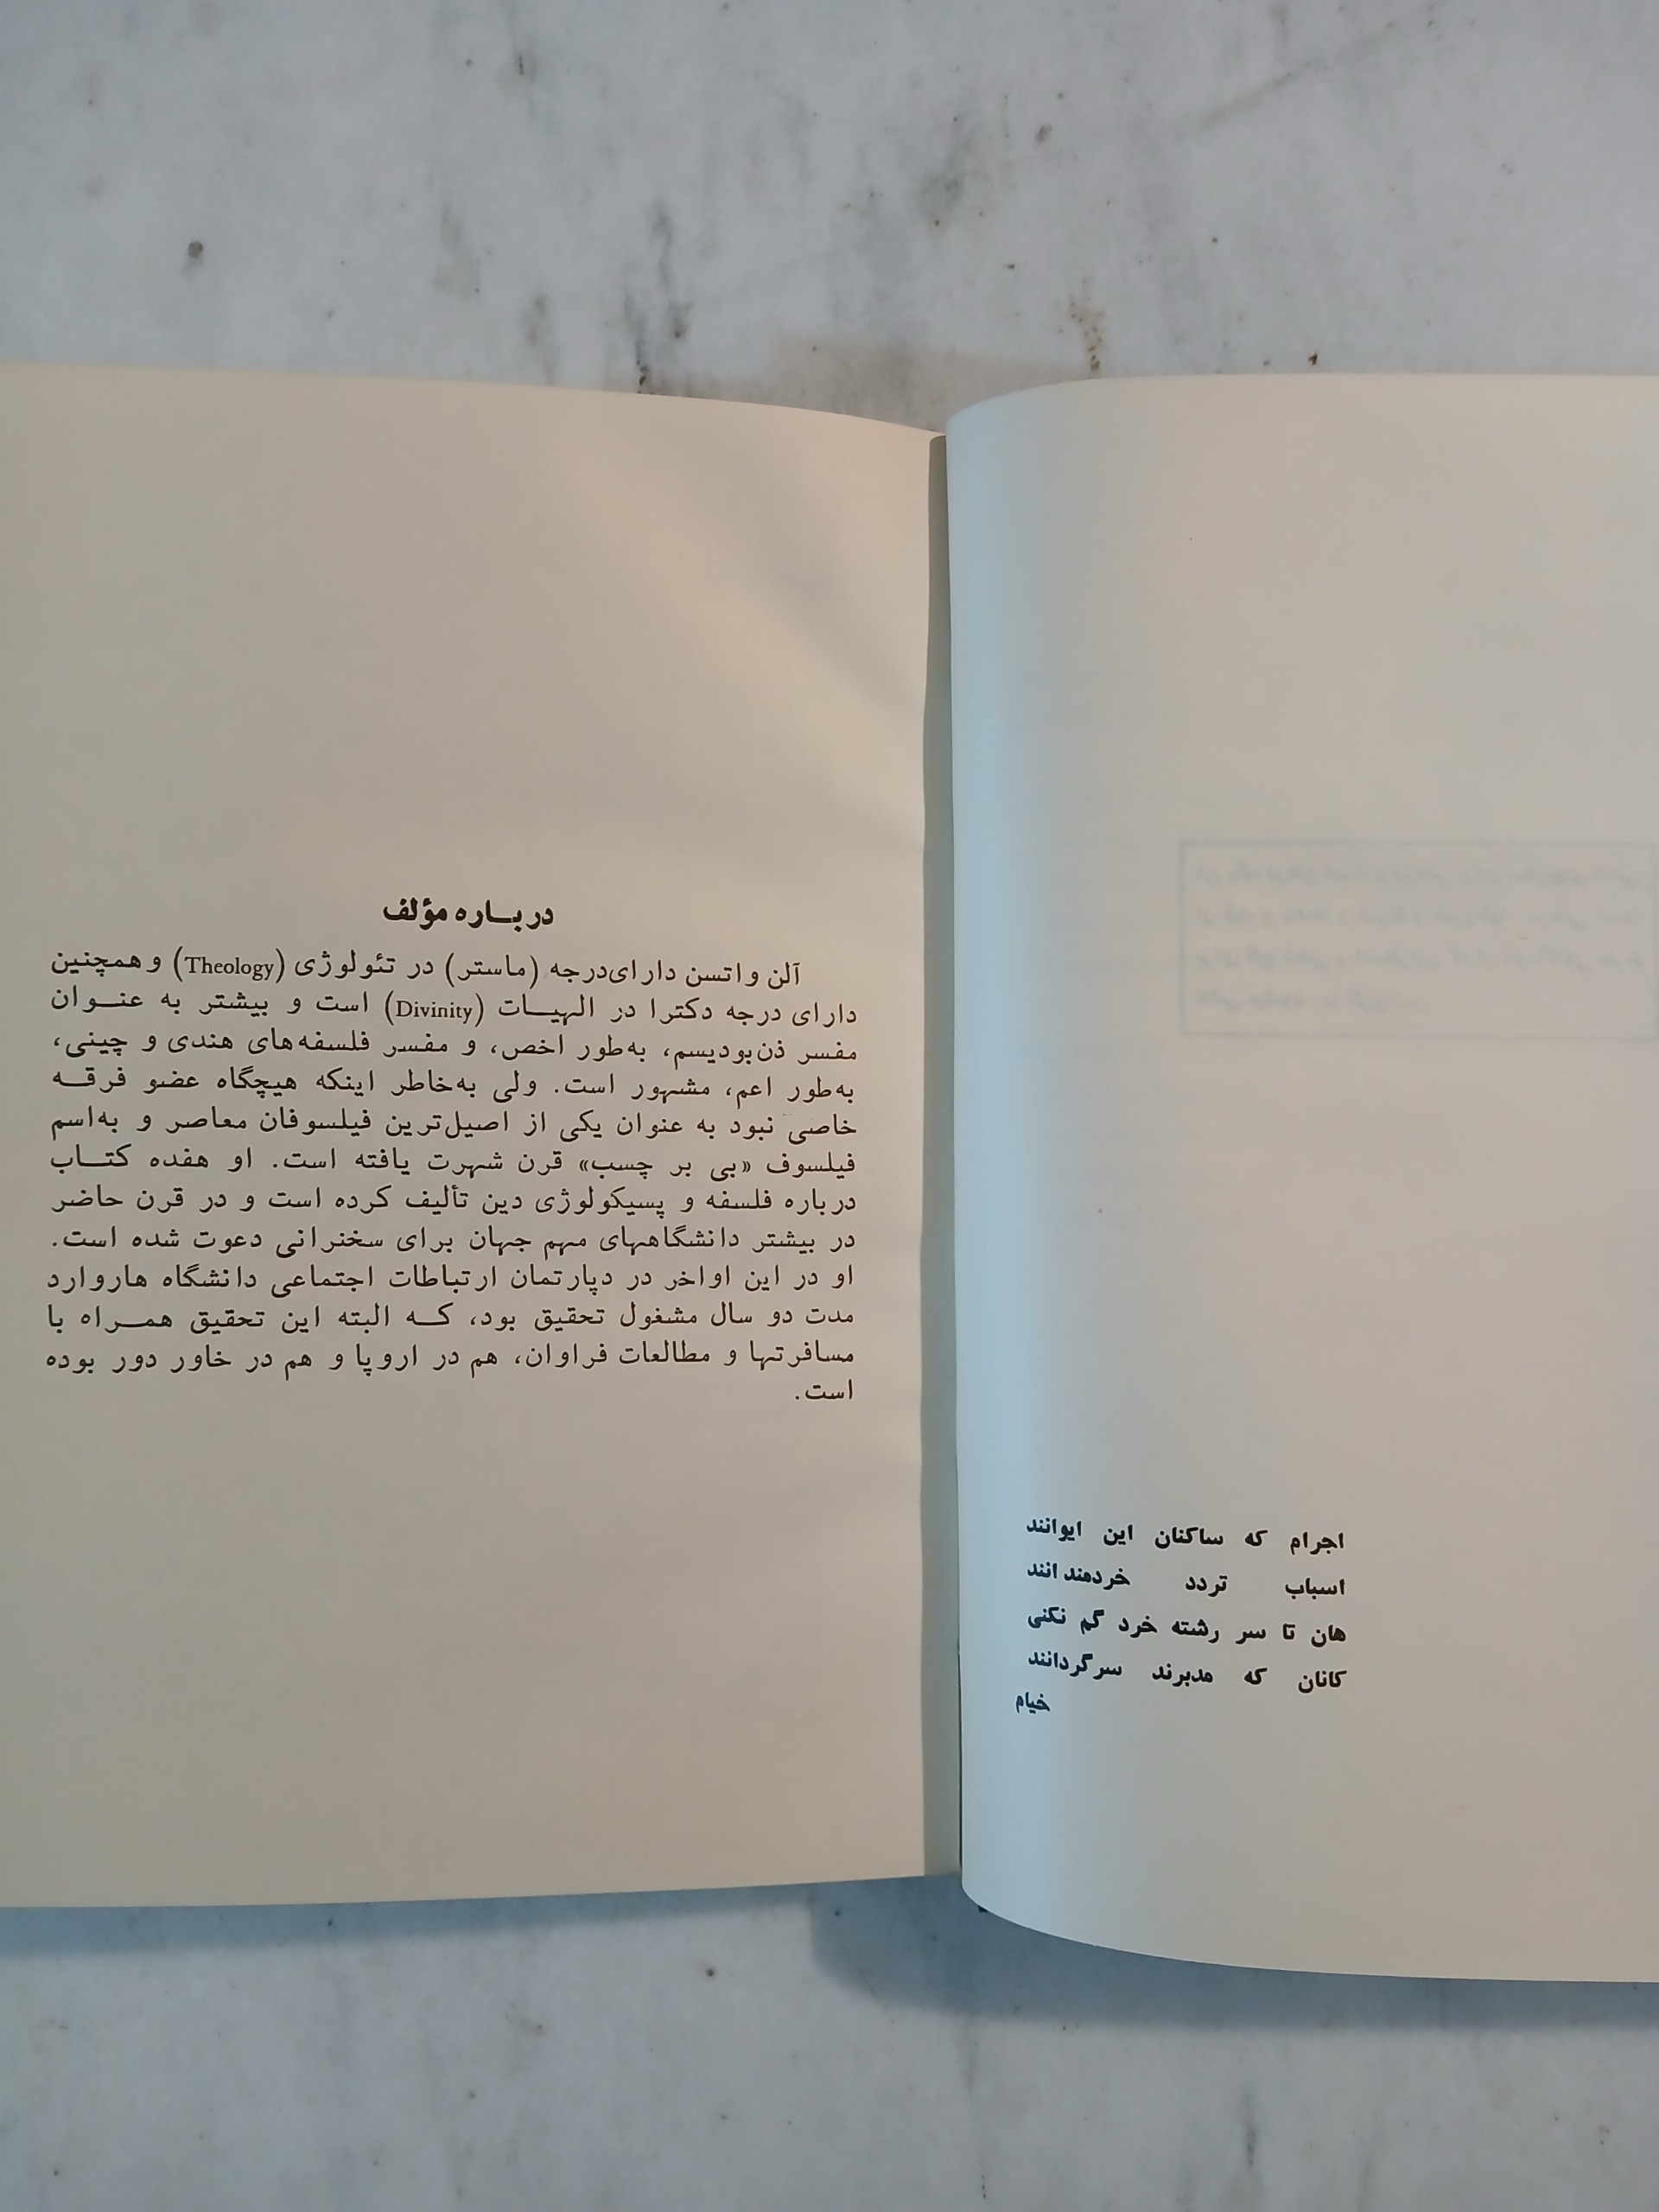 اجرام که ساکنان این ایوانند
اسباب تردد خردمندانند
هان تا سر رشته خرد گم نکنی
کانان که مدبرند سرگردانند
خیام
درباره مؤلف
آلن واتسن دارای‌درجه (ماستر) در تئولوژی (Theology) و همچنین
دارای درجه دکترا در الهیات (Divinity) است و بیشتر به عنوان
مفسر ذن‌بودیسم، به‌طور اخص، و مفسر فلسفه‌های هندی و چینی،
به‌طور اعم، مشهور است. ولی به‌خاطر اینکه هیچگاه عضو فرقه
خاصی نبود به عنوان یکی از اصیل‌ترین فیلسوفان معاصر و به‌اسم
فیلسوف «بی بر چسب» قرن شهرت یافته است. او هفده کتاب
درباره فلسفه و پسیکولوژی دین تألیف کرده است و در قرن حاضر
در بیشتر دانشگاههای مهم جهان برای سخنرانی دعوت شده است.
او در این اواخر در دپارتمان ارتباطات اجتماعی دانشگاه هاروارد
مدت دو سال مشغول تحقیق بود، که البته این تحقیق همراه با
مسافرتها و مطالعات فراوان، هم در اروپا و هم در خاور دور بوده
است.